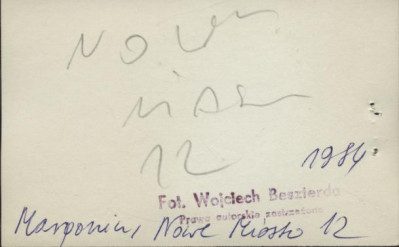 Nowe
Miasto
12
1984
Fot. Wojciech Beszterda
Prawa autorskie zastrzeżone
Margonin, Nowe Miasto 12